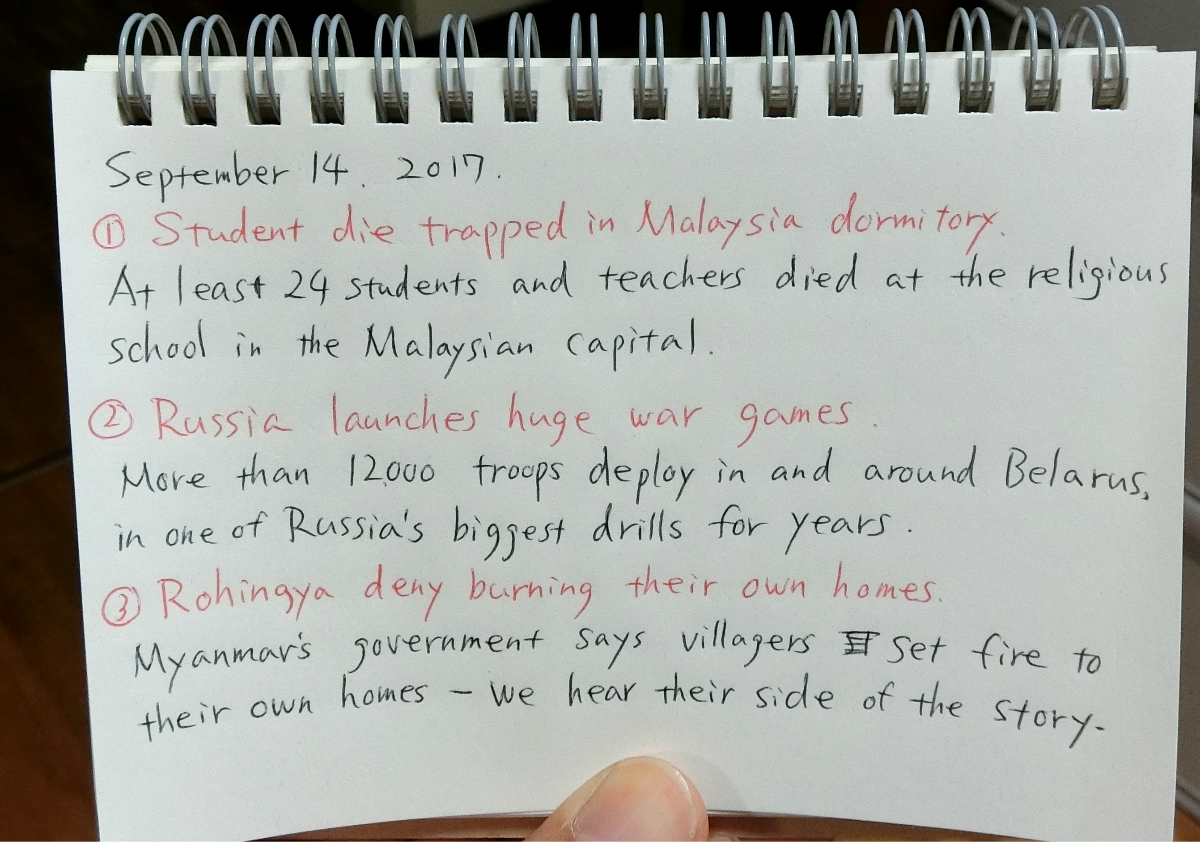 September 14. 2017.
① Student die trapped in Malaysia dormitory.
At least 24 students and teachers died at the religious
school in the Malaysian capital.
② Russia launches huge war games.
More than 12,000 troops deploy in and around Belarus,
in one of Russia's biggest drills for years.
③ Rohingya deny burning their own homes.
Myanmar's government says villagers set fire to
their own homes – we hear their side of the story.